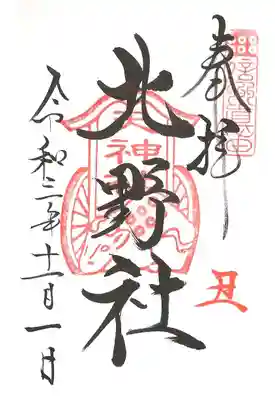 奉拝
北野社
丑
令和三年十一月一日
神